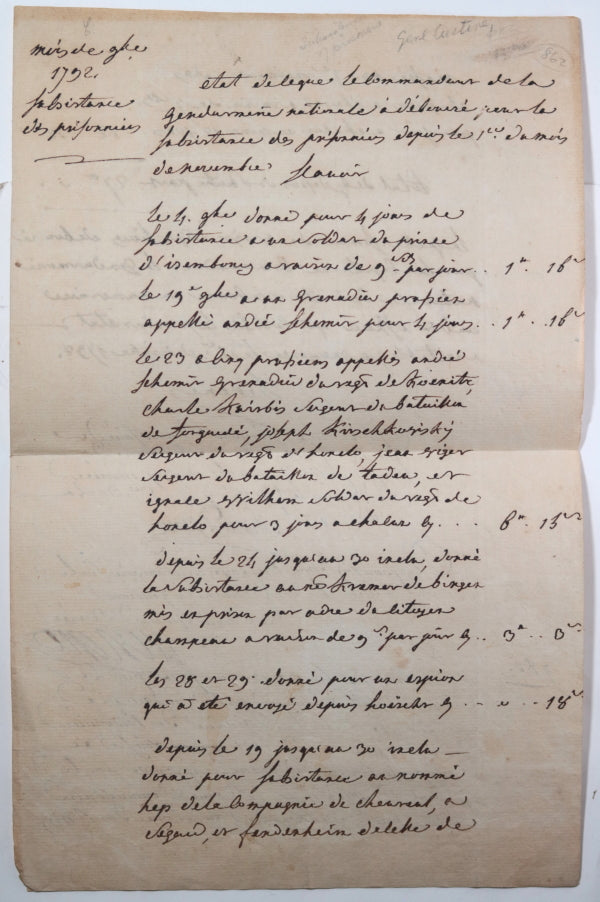 mois de 9bre
1792.
subsistance
des prisonniers
Genl Custine
862
état de ce que le commandeur de la
gendarmerie nationale a délivré pour la
subsistance des prisonniers depuis le 1er du mois
de novembre Scavoir
le 4. 9bre donné pour 4 jours de
subsistance a un soldat du prince
d'isembourg a raison de 9s par jour .. 1# . 16s
le 19e 9bre a un Grenadier prussien
appellé andré schemir pour 4 jours .. 1# .. 16s
le 23 a cinq prussiens appellés andré
schemir Grenadier du regt de
charle sergeur du bataillon
de joseph Kirschkowisky
sergeur du regt d' jean
sergeur du bataillon de et
ignace Willhem soldat du regt de
pour 3 jours a chacun 9 . . . 6# . 15s
depuis le 24 jusqu'au 30 inclu, donné
la subsistance au né Kremer de bingen
mis en prison par ordre du citoyen
champeau a raison de 9s par jour 9 .. 3# .. 3s
les 28 et 29. donné pour un espion
qui a été envoyé depuis hoëscht 9 . . . . 18s
depuis le 19 jusqu'au 30 inclu
donné pour subsistance au nommé
hep de la Compagnie de chevreul, a
et fendenheim de celle de